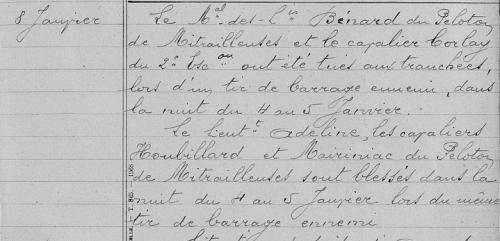 8 Janvier
Le Mal-des-Lis Bénard du Peloton
de Mitrailleuses et le cavalier Corlay
du 2e Escon ont été tués aux tranchées,
lors d'un tir de barrage ennemi, dans
la nuit du 4 au 5 Janvier.
Le Lieut.t Adeline, les cavaliers
Houbillard et Mairiniac du Peloton
de Mitrailleuses sont blessés dans la
nuit du 4 au 5 Janvier lors du même
tir de barrage ennemi